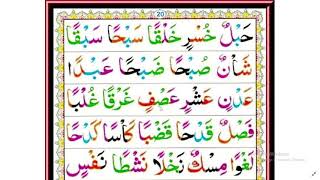 20
حَبْلٌ خُسْرٍ خَلْقًا سَبْحًا سَبْقًا
شَأْنٌ صُبْحًا ضَبْحًا عَبْدًا
عَدْنٍ عَشْرٍ عَصْفٍ غَرْقًا غُلْبًا
فَصْلٌ قَدْحًا قَضْبًا كَأْسًا كَدْحًا
لَغْوًا مِسْكٌ نَخْلًا نَشْطًا نَفْسٍ